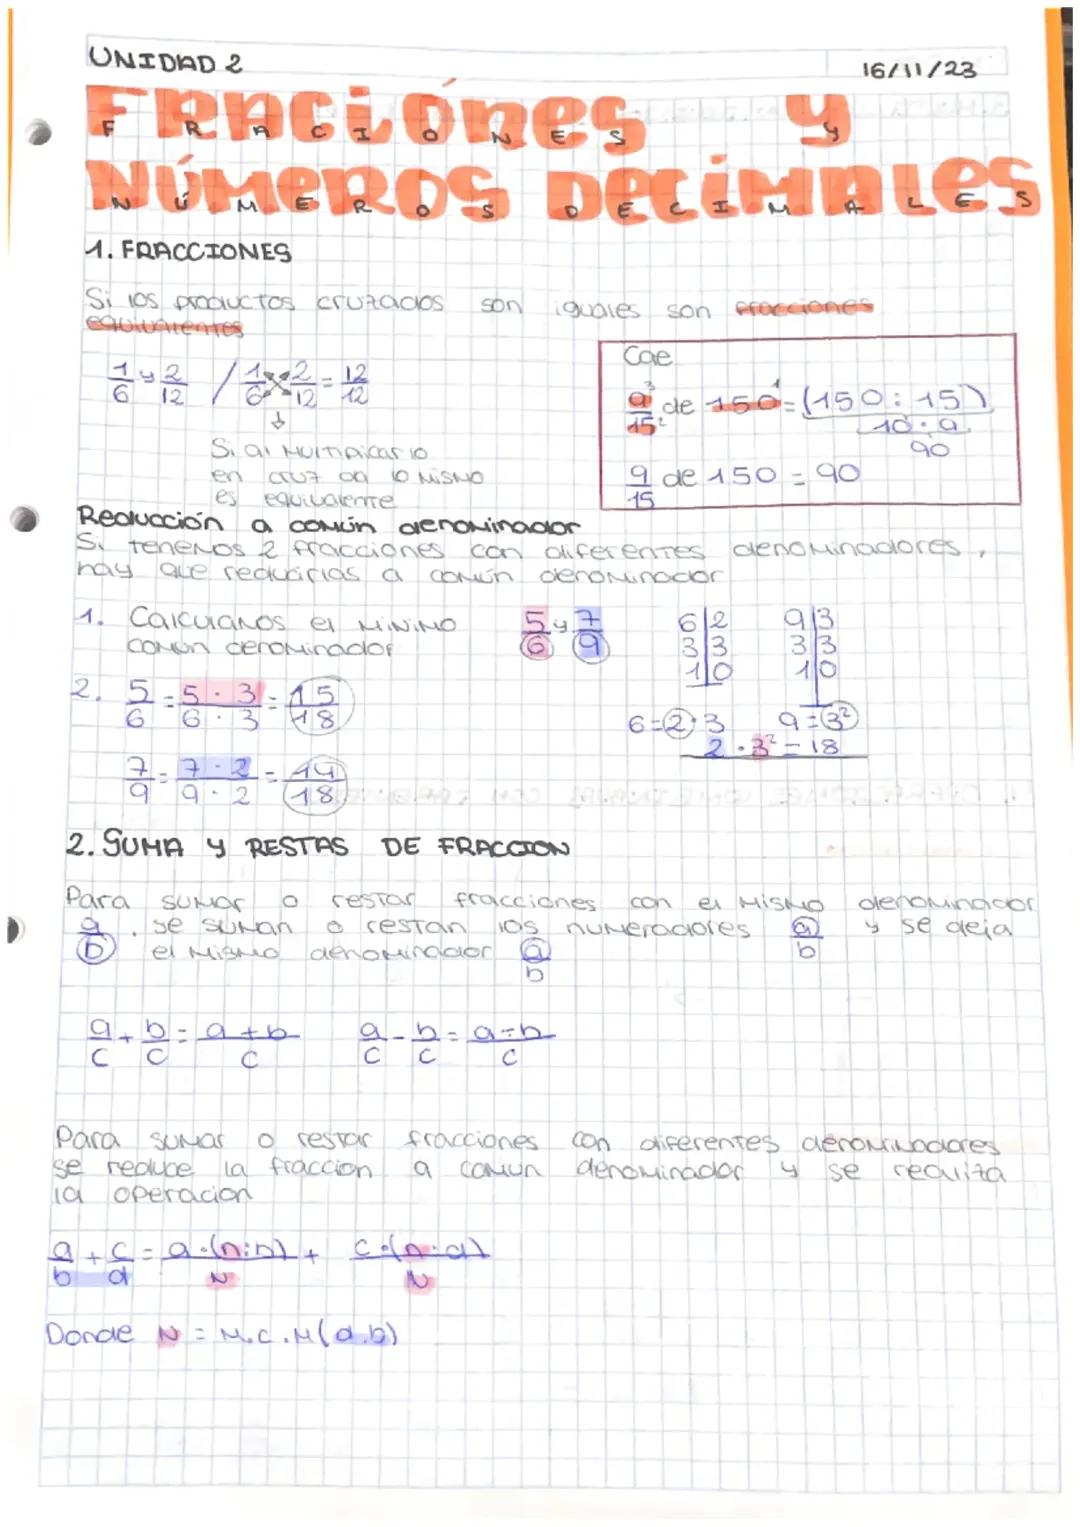 UNIDAD 2
16/11/23
FRACIONES Y
NÚMEROS DECIMALES
1. FRACCIONES
Si los productos cruzados son iguales son fracciones
equivalentes
1/6 y 2/12 / 1/6 2/12 = 12/12
↓
Si al multiplicarlo
en cruz da lo mismo
es equivalente
Cae
9/15 de 150 = (150 : 15)
10 · 9
90
9/15 de 150 = 90
Reducción a común denominador
Si tenemos 2 fracciones con diferentes denominadores,
hay que reducirlas a común denominador
1. Calculamos el mínimo
común denominador
5/6 y 7/9
6|2 9|3
3|3 3|3
1|0 1|0
2. 5/6 = 5 · 3/6 · 3 = 15/18
6=2·3 9=3²
2 · 3² = 18
7/9 = 7 · 2/9 · 2 = 14/18
2. SUMA Y RESTAS DE FRACCION
Para sumar o restar fracciones con el mismo denominador
a/b, se suman o restan los numeradores a/b y se deja
el mismo denominador a/b
a/c + b/c = a+b/c a/c - b/c = a-b/c
Para sumar o restar fracciones con diferentes denominadores
se reduce la fraccion a comun denominador y se realiza
la operacion
a/b + c/d = a·(n:b)/N + c·(n:d)/N
Donde N = M.C.M(d.b)